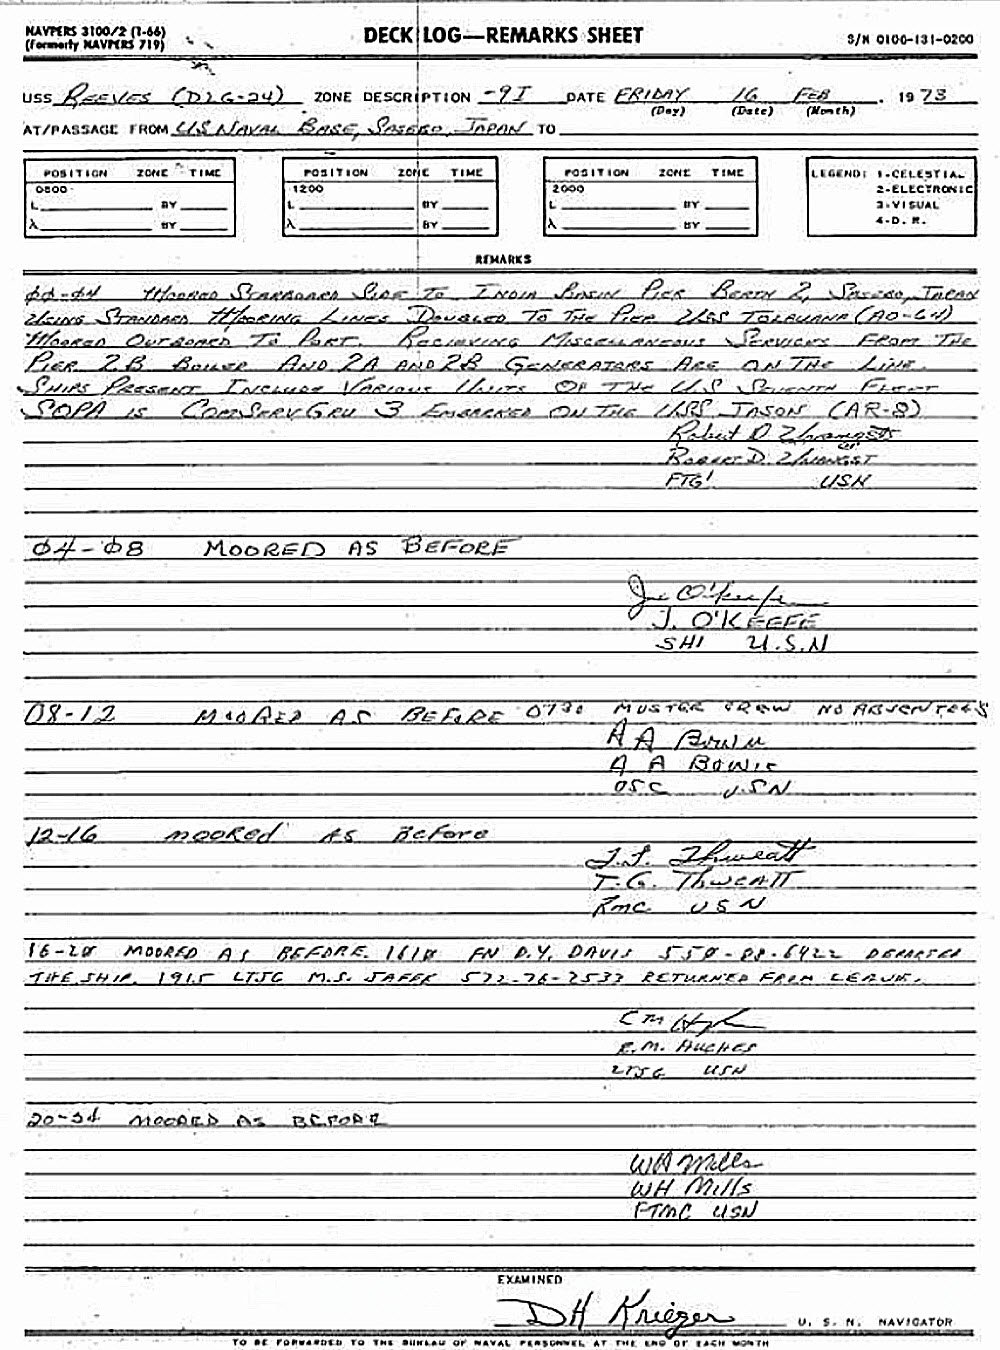 NAVPERS 3100/2 (1-66)
(Formerly NAVPERS 719)
DECK LOG—REMARKS SHEET
S/N 0100-131-0200
USS REEVES (DLG-24) ZONE DESCRIPTION -9I DATE FRIDAY 16 FEB . 1973
(Day) (Date) (Month)
AT/PASSAGE FROM U.S. NAVAL BASE, SASEBO, JAPAN TO
POSITION ZONE TIME
0800
L BY
λ BY
POSITION ZONE TIME
1200
L BY
λ BY
POSITION ZONE TIME
2000
L BY
λ BY
LEGEND: 1-CELESTIAL
2-ELECTRONIC
3-VISUAL
4-D. R.
REMARKS
00-04 MOORED STARBOARD SIDE TO INDIA BASIN PIER BERTH 2, SASEBO, JAPAN
USING STANDARD MOORING LINES DOUBLED TO THE PIER USS TOLOVANA (AO-64)
MOORED OUTBOARD TO PORT. RECIEVING MISCELLANEOUS SERVICES FROM THE
PIER 2B BOILER AND 2A AND 2B GENERATORS ARE ON THE LINE.
SHIPS PRESENT INCLUDE VARIOUS UNITS OF THE U.S SEVENTH FLEET
SOPA IS COMSERVGRU 3 EMBARKED ON THE USS JASON (AR-8)
Robert D.
ROBERT D.
FTG1 USN
04-08 MOORED AS BEFORE
Joe O'Keefe
J. O'KEEFE
SH1 U.S.N
08-12 MOORED AS BEFORE 0730 MUSTER CREW NO ABSENTEES
A A Bowie
A A BOWIE
OSC U.S.N
12-16 MOORED AS BEFORE
T.G. Thweatt
T.G. THWEATT
RMC U S N
16-20 MOORED AS BEFORE. 1610 FN D.Y. DAVIS 550-88-6422 DEPARTED
THE SHIP. 1915 LTJG M.S. JAFEK 572-76-2533 RETURNED FROM LEAVE.
E.M. HUGHES
LTJG USN
20-24 MOORED AS BEFORE
WH Mills
WH Mills
FTMC USN
EXAMINED
DH Krieger U. S. N. NAVIGATOR
TO BE FORWARDED TO THE BUREAU OF NAVAL PERSONNEL AT THE END OF EACH MONTH